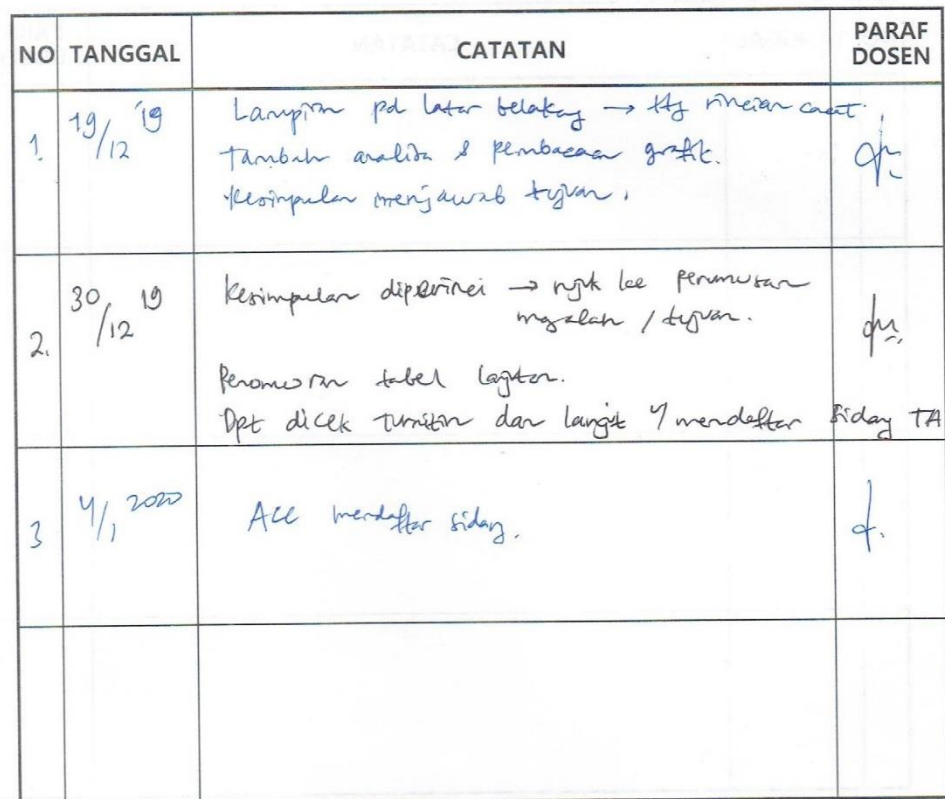 NO TANGGAL CATATAN PARAF DOSEN
1. 19/12 '19 Lampiran pd latar belakag → ttg rincian cacat.
Tambah analisa & pembacaan grafik.
Kesimpulan menjawab tujuan.
2. 30/12 19 Kesimpulan diperinci → rujuk ke perumusan
masalah / tujuan.
Penomoran tabel lanjutan.
Dpt dicek turnitin dan langst y/ mendaftar sidang TA
3 4/1 2020 ACC mendaftar sidang.